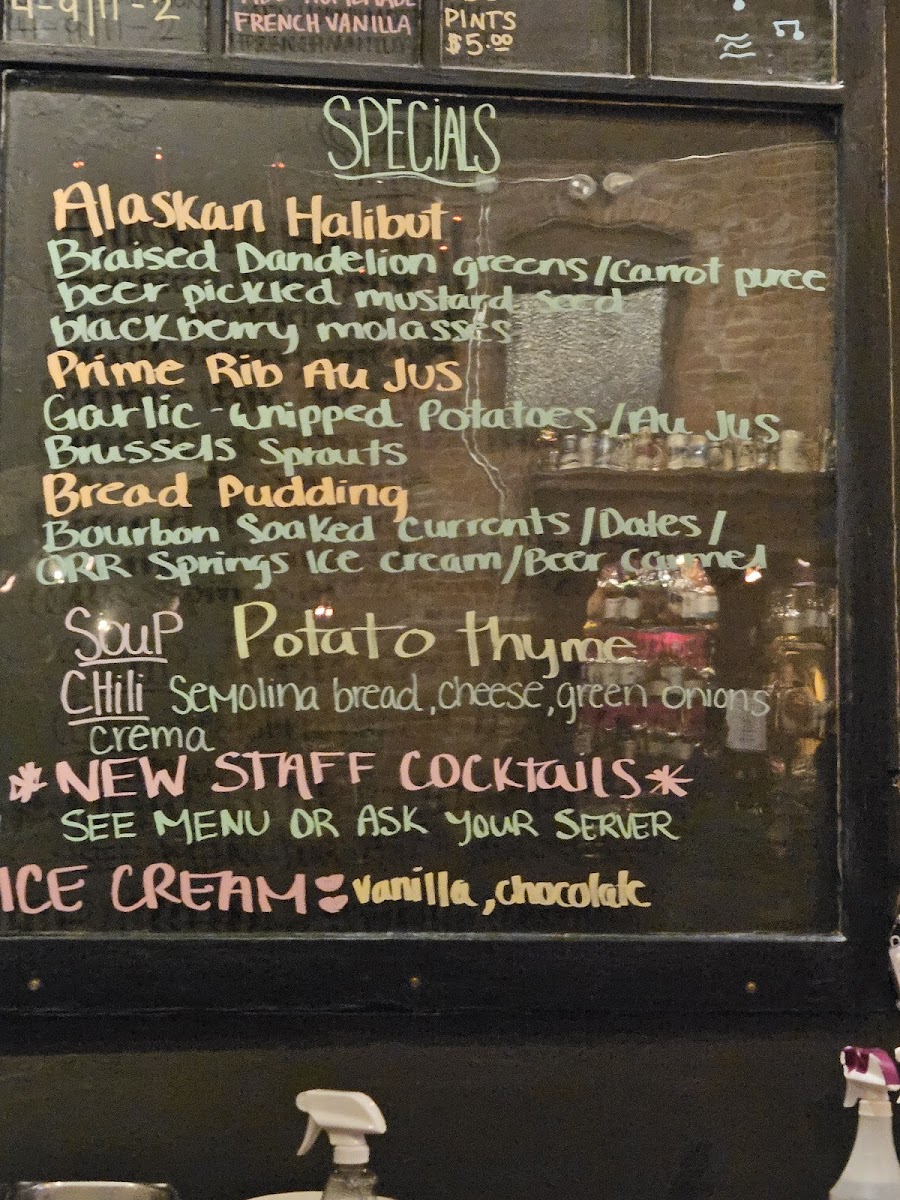 4-9/11-2
FRENCH VANILLA
PINTS
$5.00
SPECIALS
Alaskan Halibut
Braised Dandelion greens/carrot puree
beer pickled mustard seed
blackberry molasses
Prime Rib Au Jus
Garlic-whipped Potatoes/Au Jus
Brussels Sprouts
Bread Pudding
Bourbon Soaked currents/Dates/
ORR Springs Ice cream/Beer Carmel
Soup Potato thyme
CHili Semolina bread, cheese, green onions
crema
*NEW STAFF COCKtails*
SEE MENU OR ASK YOUR SERVER
ICE CREAM: vanilla, chocolate